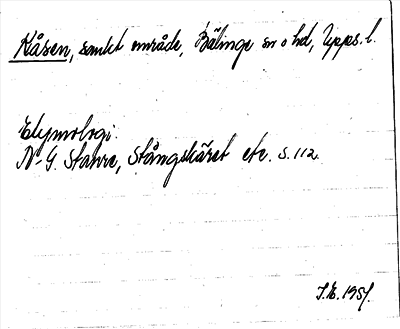 Kåsen, sankt område, Bälinge sn o hd, Upps. l.
Etymologi.
N-G. Stahre, Stångskäret etc. s. 112.
J.E. 1951.